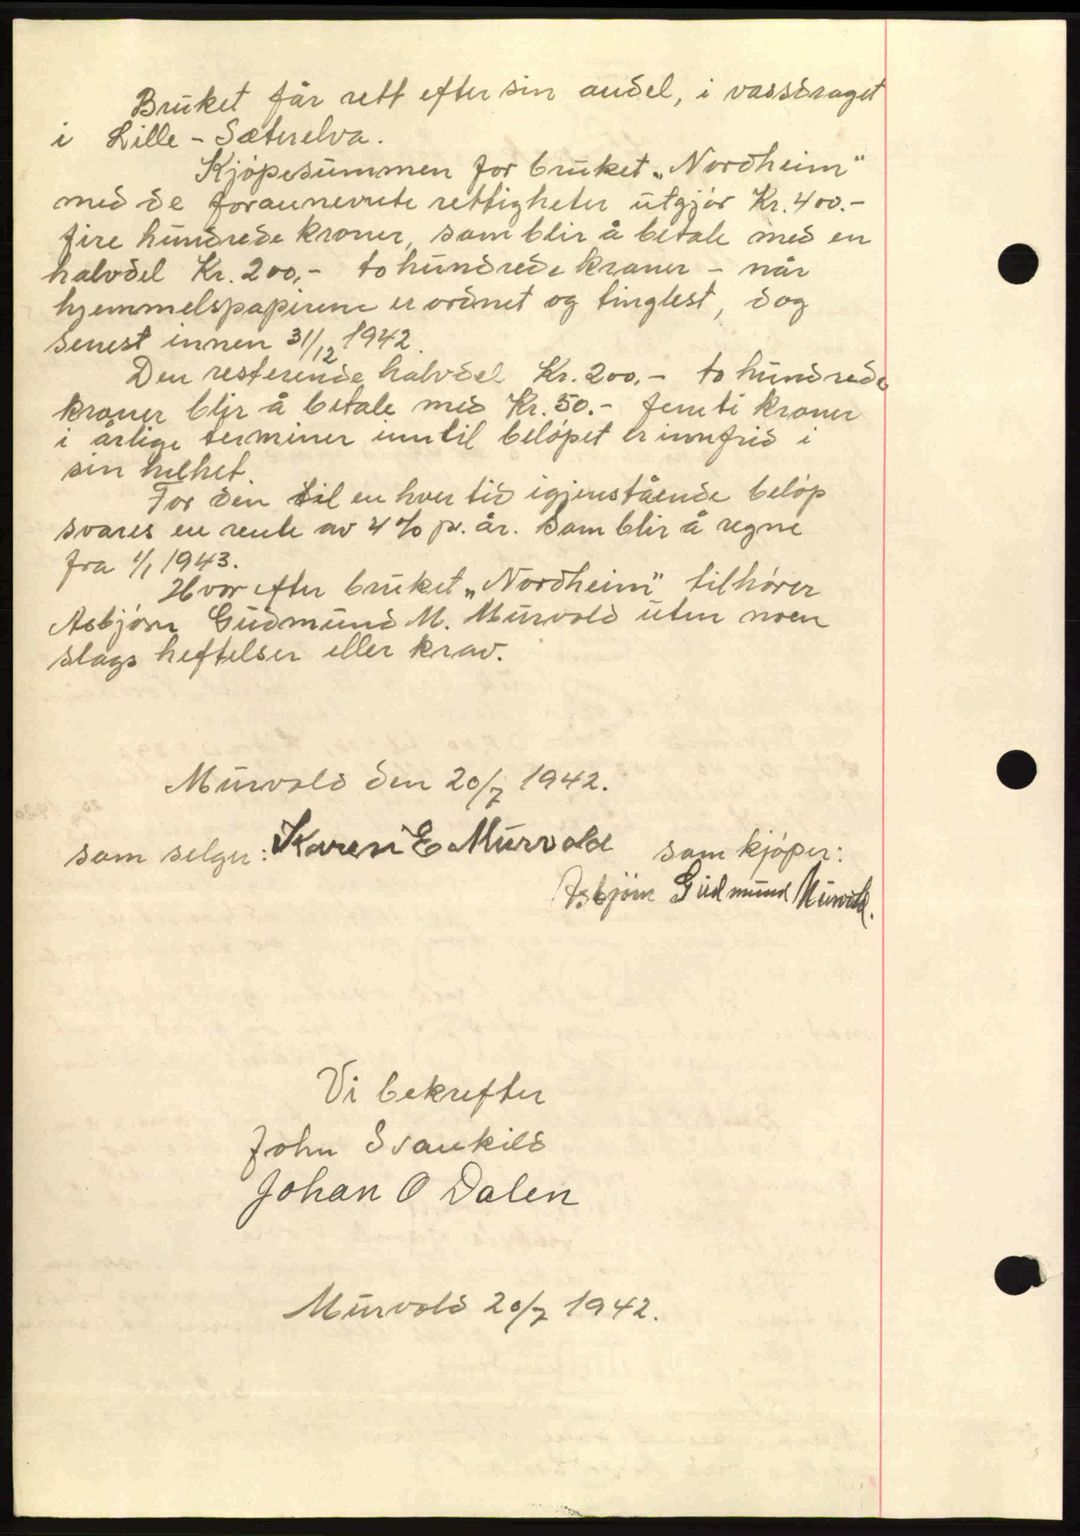 Bruket får rett efter sin andel, i vassdraget
i Lille-Sæterelva.
Kjøpesummen for bruket „Nordheim"
med de forannevnte rettigheter utgjør Kr. 400.-
fire hundrede kroner, som blir å betale med en
halvdel Kr. 200.- to hundrede kroner - når
hjemmelspapirene er ordnet og tinglest, dog
senest innen 31/12 1942.
Den resterende halvdel Kr. 200.- to hundrede
kroner blir å betale med Kr. 50.- femti kroner
i årlige terminer inntil beløpet er innfrid i
sin helhet.
For den til en hver tid igjenstående beløp
svares en rente av 4% pr. år. Som blir å regne
fra 1/1 1943.
Hvorefter bruket „Nordheim" tilhører
Asbjørn Gudmund M. Murvold uten noen
slags heftelser eller krav.
Murvold den 20/7 1942.
som selger: Karen E Murvold som kjøper:
Asbjörn Gudmund Murvold.
Vi bekrefter
John Svankild
Johan O Dalen
Murvold 20/7 1942.